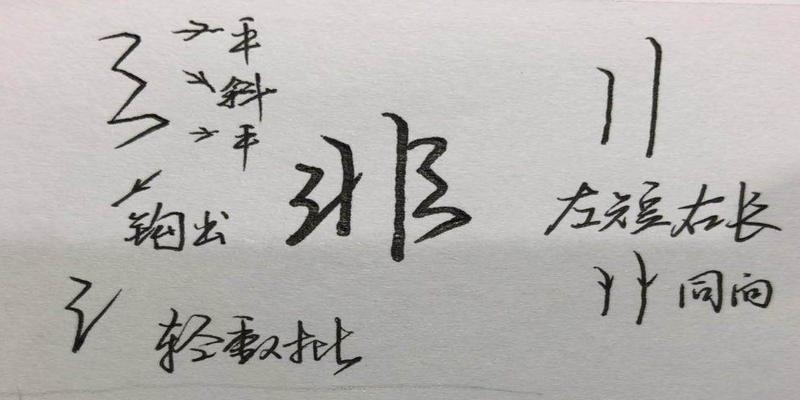 平
斜
平
非
钩出
左短右长
同向
轻重对比